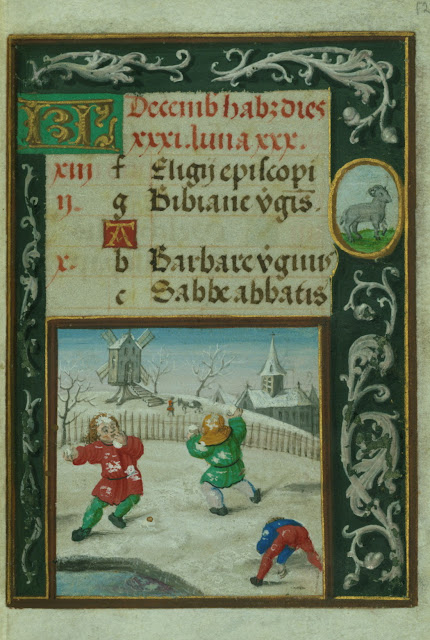 52
KL Decemb habz dies
xxxi. luna xxx.
xiii f Eligij episcopi
ij. g Bibiane v̄gis.
A
x. b Barbare v̄ginis
c Sabbe abbatis